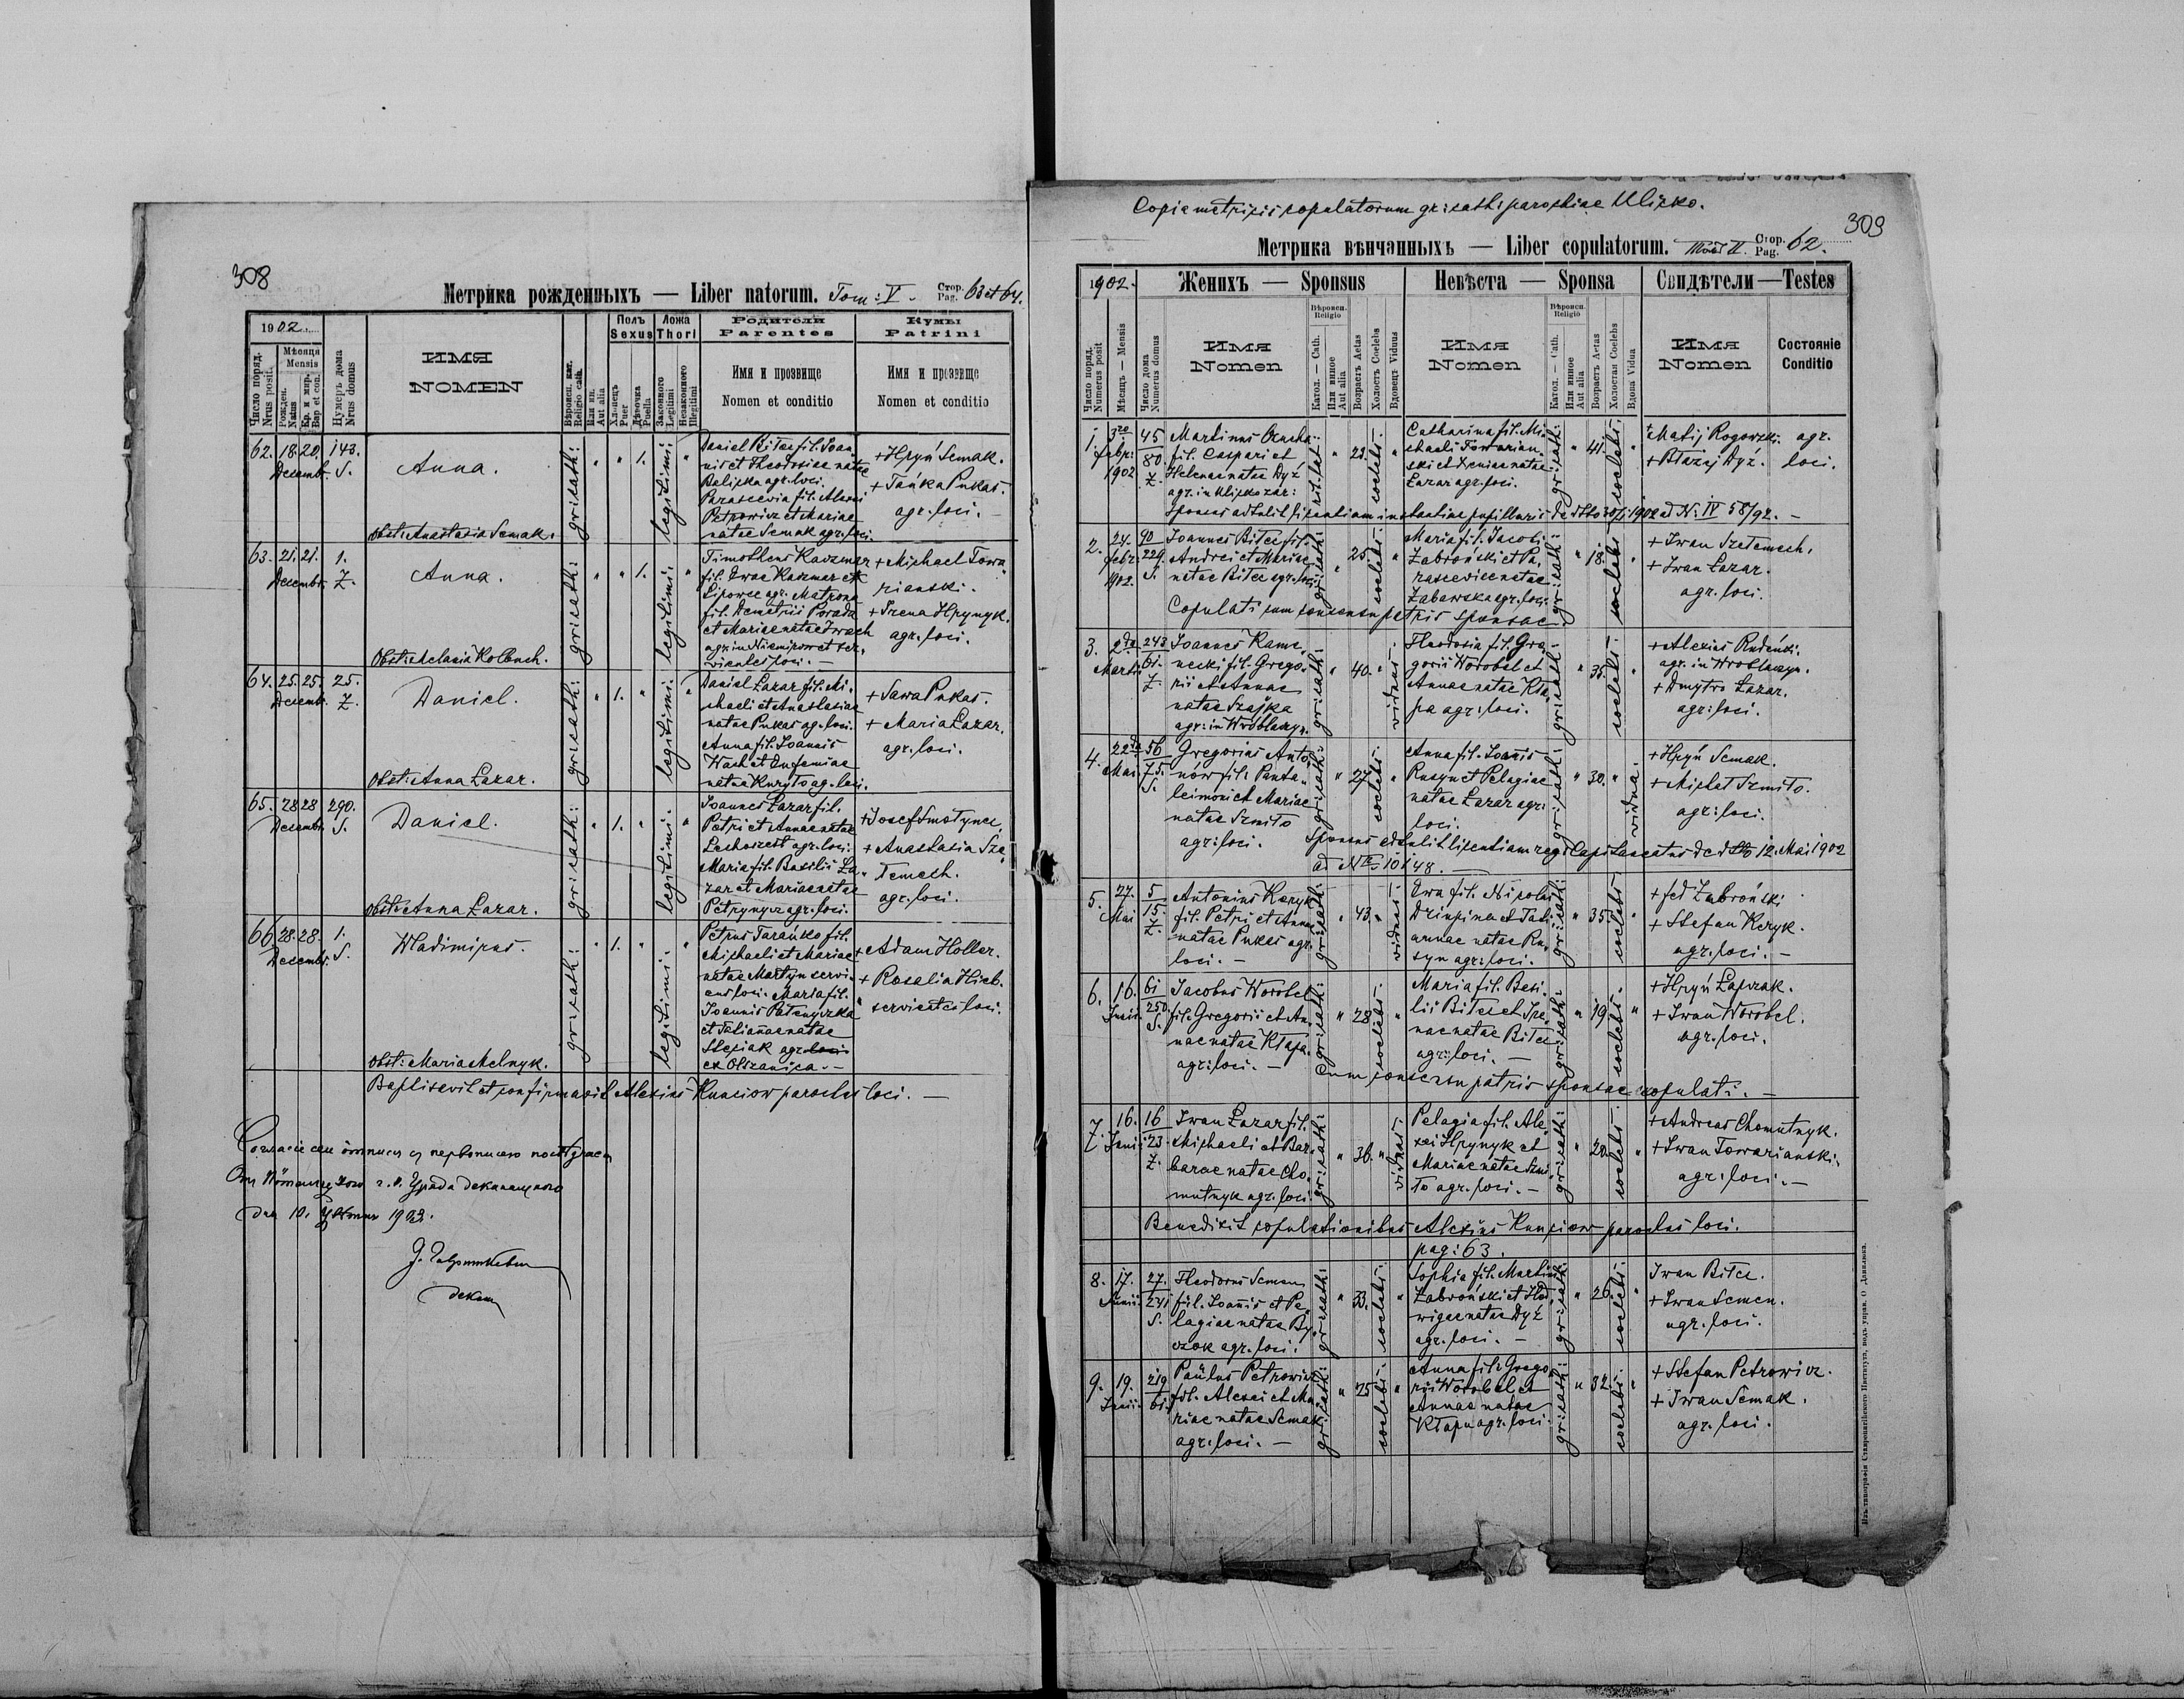 308
Метрика рожденныхъ — Liber natorum. Tom: V. Стор. Pag. 63 et 64.
1902.
Число поряд. Nrus posit.
Мѣсяця Mensis
Рожден. Natus
Кр. и мир. Bap et con.
Нумеръ дома Nrus domus
ИМЯ
NOMEN
Вѣроисп. кат. Religio cath.
Или ин. Aut alia
Полъ
Sexus
Хлопецъ Puer
Дѣвочка Puella
Ложа
Thori
Законного Legitimi
Незаконного Illegitimi
Родители
Parentes
Имя и прозвище
Nomen et conditio
Кумы
Patrini
Имя и прозвище
Nomen et conditio
62. 18. 20. 143.
Decembr. S.
Anna.
gr: cath:
" " 1.
legitimi:
"
Daniel Bitce fil. Joan
nis et Theodosiae natae
agr. loci.
Parascevia fil. Alexii
Petrowicz et Mariae
natae Semak agr. loci.
+ Hryń Semak.
+ Tańka Pukas.
agr. loci. —
Obst: Anastasia Semak.
63. 21. 21. 1.
Decembr. Z.
Anna.
gr: cath:
" " 1.
legitimi:
"
Timotheus Kaczmar
fil. Ewae Kaczmar ex
Lipowce agr. Matrona
fil. Demetrii Porada
et Mariae natae Iwach
agr. in Niemirow et ser,
vientes loci. —
+ Michael Towa
rianski.
+ Irena Hrynyk.
agr. loci.
Obst: Melania Kolbuch.
64. 25. 25. 25.
Decemb. Z.
Daniel.
gr: cath:
" 1. "
legitimi:
"
Daniel Lazar fil. Mi,
chaeli et Anastasiae
natae Pukas ag. loci.
Anna fil. Joannis
Wach et Eufemiae
natae Kuryło ag. loci.
+ Sawa Pukas.
+ Maria Lazar.
agr. loci.
Obst: Anna Lazar.
65. 28 28 290.
Decembr. S.
Daniel.
gr: cath:
" 1. "
legitimi.
"
Joannes Lazar fil.
Petri et Annae natae
agr. loci:
Maria fil. Basilii La,
zar et Mariae natae
agr. loci.
+ Josef Smotynec,
+ Anastasia Sze
temech.
agr. loci.
Obst: Anna Lazar.
66 28. 28. 1.
Decembr. S.
Wladimirus.
gr: cath:
" 1. "
legitimi.
"
Petrus Tarańko fil.
Michaeli et Mariae
natae Martyn servi,
ens loci. Maria fil.
Joannis
et Tatianae natae
Stesiak agr. loci
ex Olszanica. —
+ Adam Holler.
+ Rosalia Hieb.
servientes loci.
Obst: Maria Melnyk.
Baptisavit et confirmavit Alexius Kunciow parochus loci. —
дня 10. 1903.
декан
Copia metricis copulatorum gr: cath: parochiae Ulicko.
309
Метрика вѣнчанныхъ — Liber copulatorum. Tom II. Стор. Pag. 62.
1902.
Число поряд. Numerus posit
Мѣсяцъ — Mensis
Число дома Numerus domus
Женихъ — Sponsus
Имя
Nomen
Вѣроисп. Religio
Катол. — Cath.
Или инное Aut alia
Возрастъ Aetas
Холостъ Coelebs
Вдовецъ Viduus
Невѣста — Sponsa
Имя
Nomen
Вѣроисп. Religio
Катол. — Cath.
Или инное Aut alia
Возрастъ Aetas
Холостая Coelebs
Вдова Vidua
Свидѣтели — Testes
Имя
Nomen
Состояніе
Conditio
1. 3tia 45
febr: 80
1902 Z.
Martinus
fil. Caspari et
Helenae natae Dyź
agr. in Ulicko zar:
rit. lat:
" 23. coelebs. "
Catharina fil. Mi
chaeli Towarian
ski et Xeniae natae
Lazar agr. loci.
gr: cath:
" 41. coelebs. "
+ Matij Rogowski. agr.
+ Błażej Dyź. loci.
Sponsus adtulit licentiam instantiae pupillaris de dtto 1902 ad N: IV 58/92. —
2. 24. 90
febr: 229
1902. S.
Joannes Bitce fil.
Andrei et Mariae
natae Bitce agr. loci
gr: cath:
" 25. coelebs. "
Maria fil. Jacobi
Zabroński et Pa,
rasceviae natae
Zabawska agr. loci.
gr: cath:
" 18. coelebs "
+ Iwan Szetemech.
+ Iwan Lazar.
agr. loci.
Copulati cum consensu patris sponsae
3. 2da 243
Martii 61. Z.
Joannes Kame,
necki fil. Grego,
rii et Annae
natae Szajka
agr: in Wróblaczyn.
gr: cath:
" 40. " viduus.
Theodosia fil. Gre
gorii Worobel et
Annae natae Kła
pa agr. loci.
gr: cath:
" 35. coelebs. "
+ Alexius Rudeński.
agr. in Wroblaczyn.
+ Dmytro Lazar.
agr: loci.
4. 22da 56
Mai 75. S.
Gregorius Anto,
nów fil. Panta,
leimoni et Mariae
natae Szmiło
agr: loci.
gr: cath:
" 27. coelebs. "
Anna fil. Joannis
Rusyn et Pelagiae
natae Lazar agr:
loci.
gr: cath:
" 30. " vidua.
+ Hryń Semak.
+ Michał Szmiło.
agr: loci.
Sponsus adtulit licentiam reg: Capitaneatus de dtto 12. Mai 1902
ad Nro 10148. —
5. 27. 5
Mai 15. Z.
Antonius Keryk
fil. Petri et Annae
natae Pukas agr.
loci. —
gr: cath:
" 43. " viduus.
Ewa fil. Nicolai
et Tati
annae natae Ru,
syn agr: loci.
gr: cath:
" 35. coelebs. "
+ Fed Zabroński
+ Stefan Keryk.
agr. loci. —
6. 16. 61
Junii. 250. S.
Jacobus Worobel
fil. Gregorii et An,
nae natae Kłapa.
agr: loci. —
gr: cath:
" 28 coelebs. "
Maria fil. Basi
lii Bitce et Ire
nae natae Bitce
agr: loci. —
gr: cath:
" 19. coelebs. "
+ Hryń Łapczak.
+ Iwan Worobel.
agr. loci.
Cum consensu patris sponsae copulati. —
7. 16. 16
Junii 23. Z.
Iwan Lazar fil.
Michaeli et Bar,
barae natae Cho,
mutnyk agr. loci.
gr: cath:
" 36. " viduus.
Pelagia fil. Ale,
xei Hrynyk et
Mariae natae Szmi,
ło agr. loci. —
gr: cath:
" 20. coelebs. "
+ Andreas Chomutnyk.
+ Iwan Towarianski.
agr: loci. —
Benedixit copulationibus Alexius Kunciow parochus loci.
pag: 63.
8. 17. 27.
Junii. 241 S.
Theodorus Semen
fil. Joannis et Pe,
lagiae natae By,
czok agr. loci.
gr: cath:
" 33. coelebs. "
Sophia fil. Martini
Zabroński et Hed,
wigae natae Dyź
agr. loci. —
gr: cath:
" 26. coelebs. "
Iwan Bitce.
+ Iwan Semen.
agr. loci.
9. 19. 219
Junii. 61.
Paulus Petrowicz
fil. Alexei et Ma,
riae natae Semak
agr. loci. —
gr: cath:
" 25. coelebs. "
Anna fil. Grego
rii Worobel et
Annae natae
Kłapa agr. loci.
gr: cath:
" 32. coelebs. "
+ Stefan Petrowicz.
+ Iwan Semak.
agr. loci.
Изъ типографіи Ставропигійского Института, подъ управ. О. Данилюка.